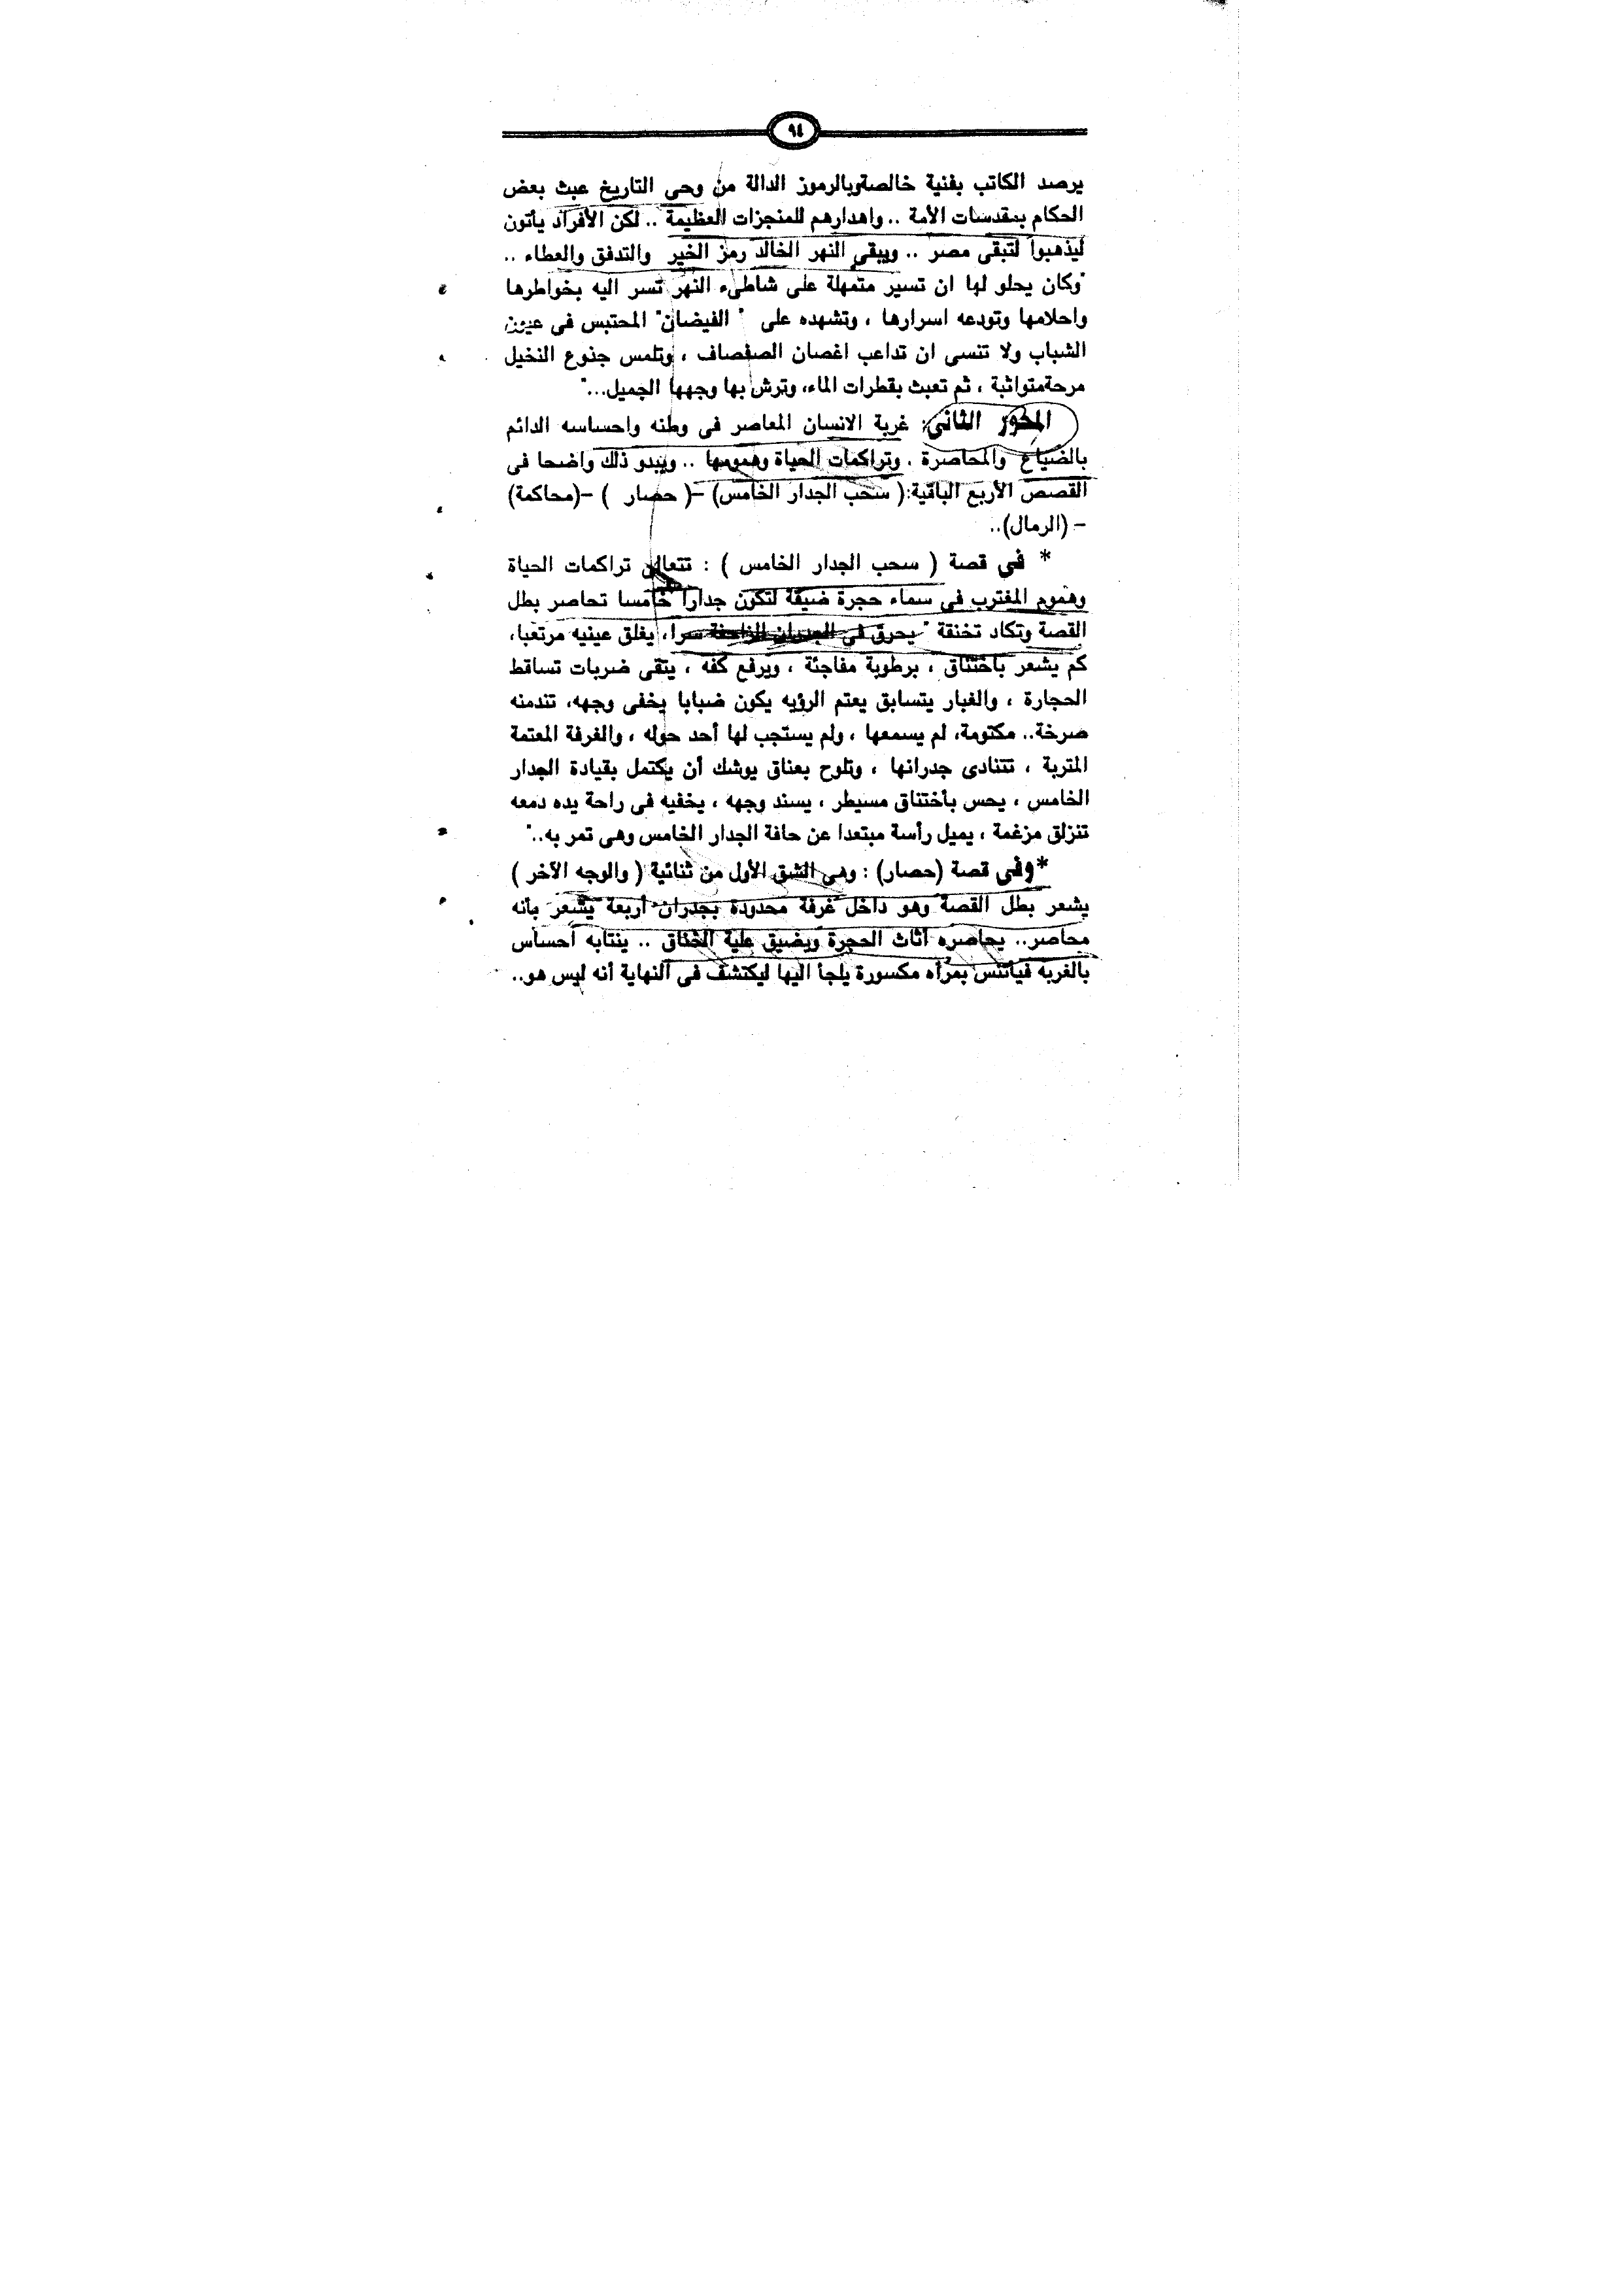 ٩٤
يرصد الكاتب بفنية خالصةوبالرموز الدالة من وحى التاريخ عبث بعض
الحكام بمقدسات الأمة .. واهدارهم للمنجزات العظيمة .. لكن الأفراد يأتون
ليذهبوا لتبقى مصر .. ويبقى النهر الخالد رمز الخير والتدفق والعطاء ..
"وكان يحلو لها ان تسير متمهلة على شاطىء النهر تسر اليه بخواطرها
واحلامها وتودعه اسرارها ، وتشهده على " الفيضان" المحتبس فى عيون
الشباب ولا تنسى ان تداعب اغصان الصفصاف ، وتلمس جنوع النخيل
مرحةمتواثبة ، ثم تعبث بقطرات الماء، وترش بها وجهها الجميل..."
المحور الثانى: غربة الانسان المعاصر فى وطنه واحساسه الدائم
بالضياع والمحاصرة . وتراكمات الحياة وهمومها .. ويبدو ذلك واضحا فى
القصص الأربع الباقية:( سحب الجدار الخامس) –( حصار ) –(محاكمة)
– (الرمال)..
* فى قصة ( سحب الجدار الخامس ) : تتعالى تراكمات الحياة
وهموم المغترب فى سماء حجرة ضيقة لتكون جدارا خامسا تحاصر بطل
القصة وتكاد تخنقة " يحرق فى الجدران الزاحفة سرا، يغلق عينيه مرتعبا،
كم يشعر بأختناق ، برطوبة مفاجئة ، ويرفع كفه ، يتقى ضربات تساقط
الحجارة ، والغبار يتسابق يعتم الرؤيه يكون ضبابا يخفى وجهه، تندمنه
صرخة.. مكتومة، لم يسمعها ، ولم يستجب لها أحد حوله ، والغرفة المعتمة
المتربة ، تتنادى جدرانها ، وتلوح بعناق يوشك أن يكتمل بقيادة الجدار
الخامس ، يحس بأختناق مسيطر ، يسند وجهه ، يخفيه فى راحة يده دمعه
تنزلق مزغمة ، يميل رأسة مبتعدا عن حافة الجدار الخامس وهى تمر به.."
*وفى قصة (حصار) : وهى الشق الأول من ثنائية ( والوجه الآخر )
يشعر بطل القصة وهو داخل غرفة محدودة بجدران أربعة يشعر بأنه
محاصر.. يحاصره أثاث الحجرة ويضيق علية الخناق .. ينتابه أحساس
بالغربه فيأتنس بمرأه مكسورة يلجأ اليها ليكتشف فى النهاية أنه ليس هو..